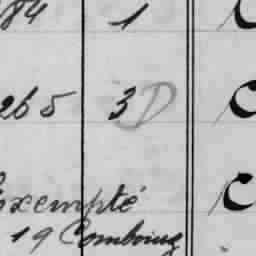 84 1 C
265 3 D C
Exempté C
19 Combourg